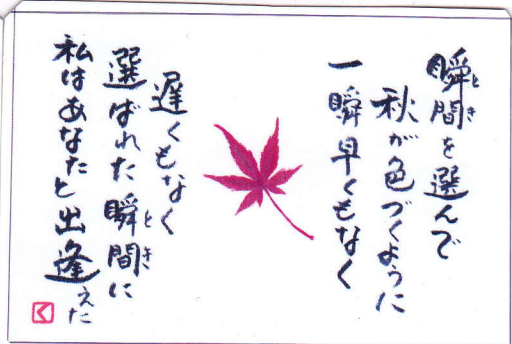 瞬間を選んで
とき
秋が色づくように
一瞬早くもなく
遅くもなく
選ばれた瞬間に
とき
私はあなたと出逢えた
く